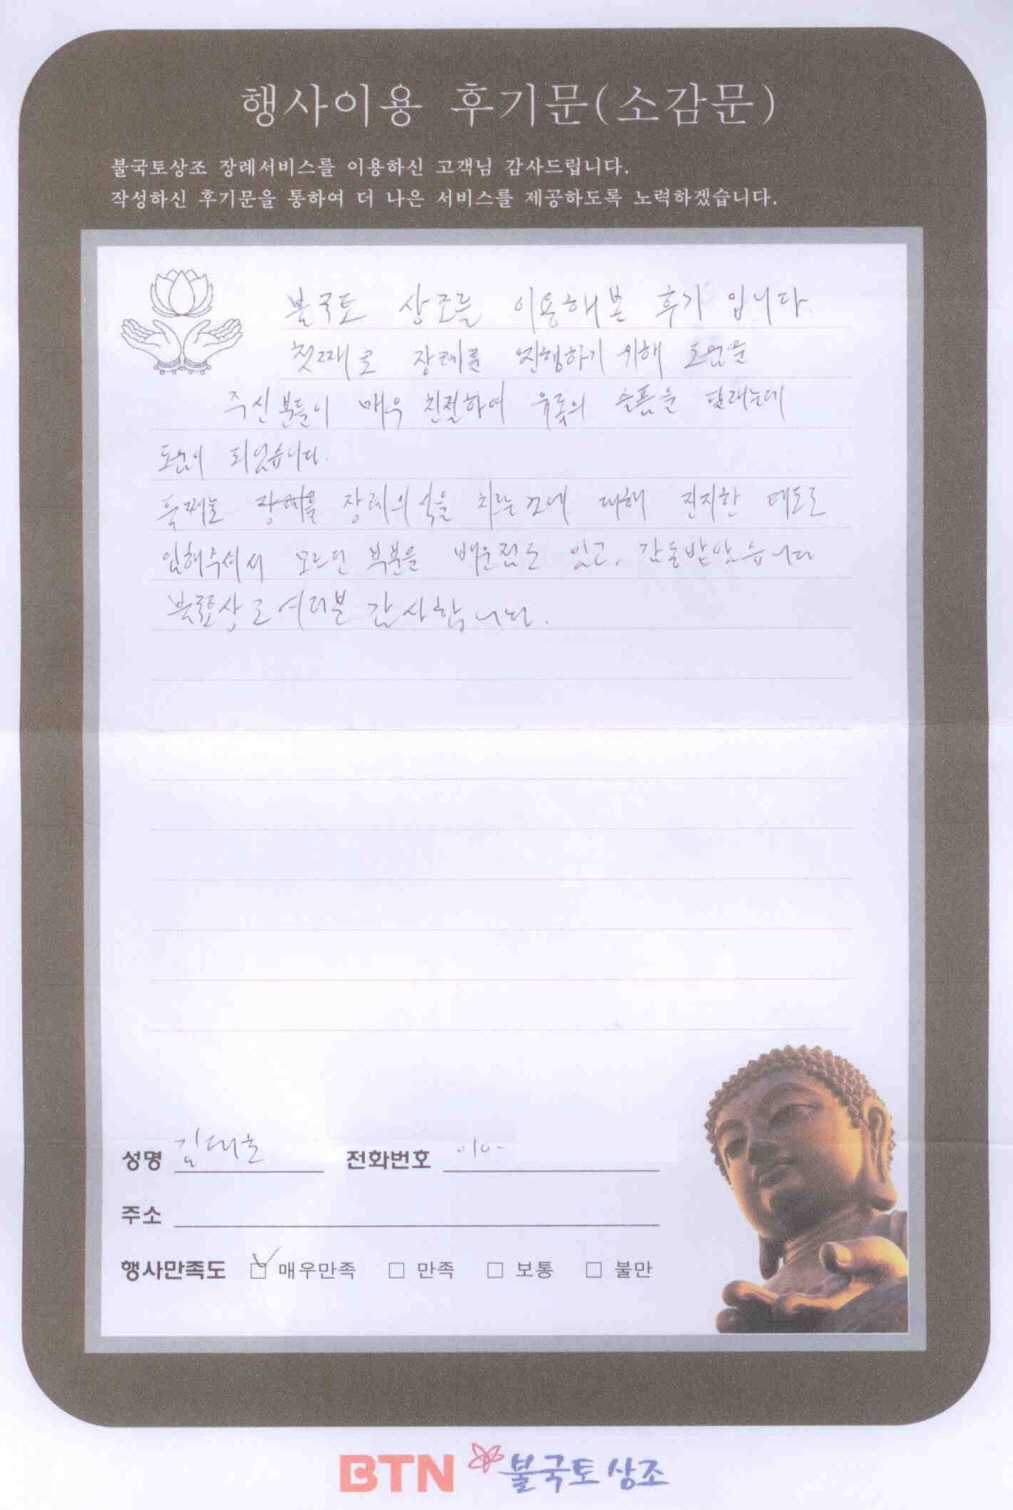 행사이용 후기문(소감문)
불국토상조 장례서비스를 이용하신 고객님 감사드립니다.
작성하신 후기문을 통하여 더 나은 서비스를 제공하도록 노력하겠습니다.
불국토 상조를 이용해본 후기 입니다.
첫째로 장례를 진행하기 위해 도움을
주신분들이 매우 친절하여 유족의 슬픔을 달래는데
도움이 되었습니다.
둘째로 장례를 장례의식을 치르는것에 대해 진지한 태도로
임해주셔서 모르던 부분을 배운점도 있고, 감동받았습니다
불국토상조 여러분 감사합니다.
성명 김대호 전화번호 010-
주소
행사만족도 매우만족 만족 보통 불만
BTN 불국토상조